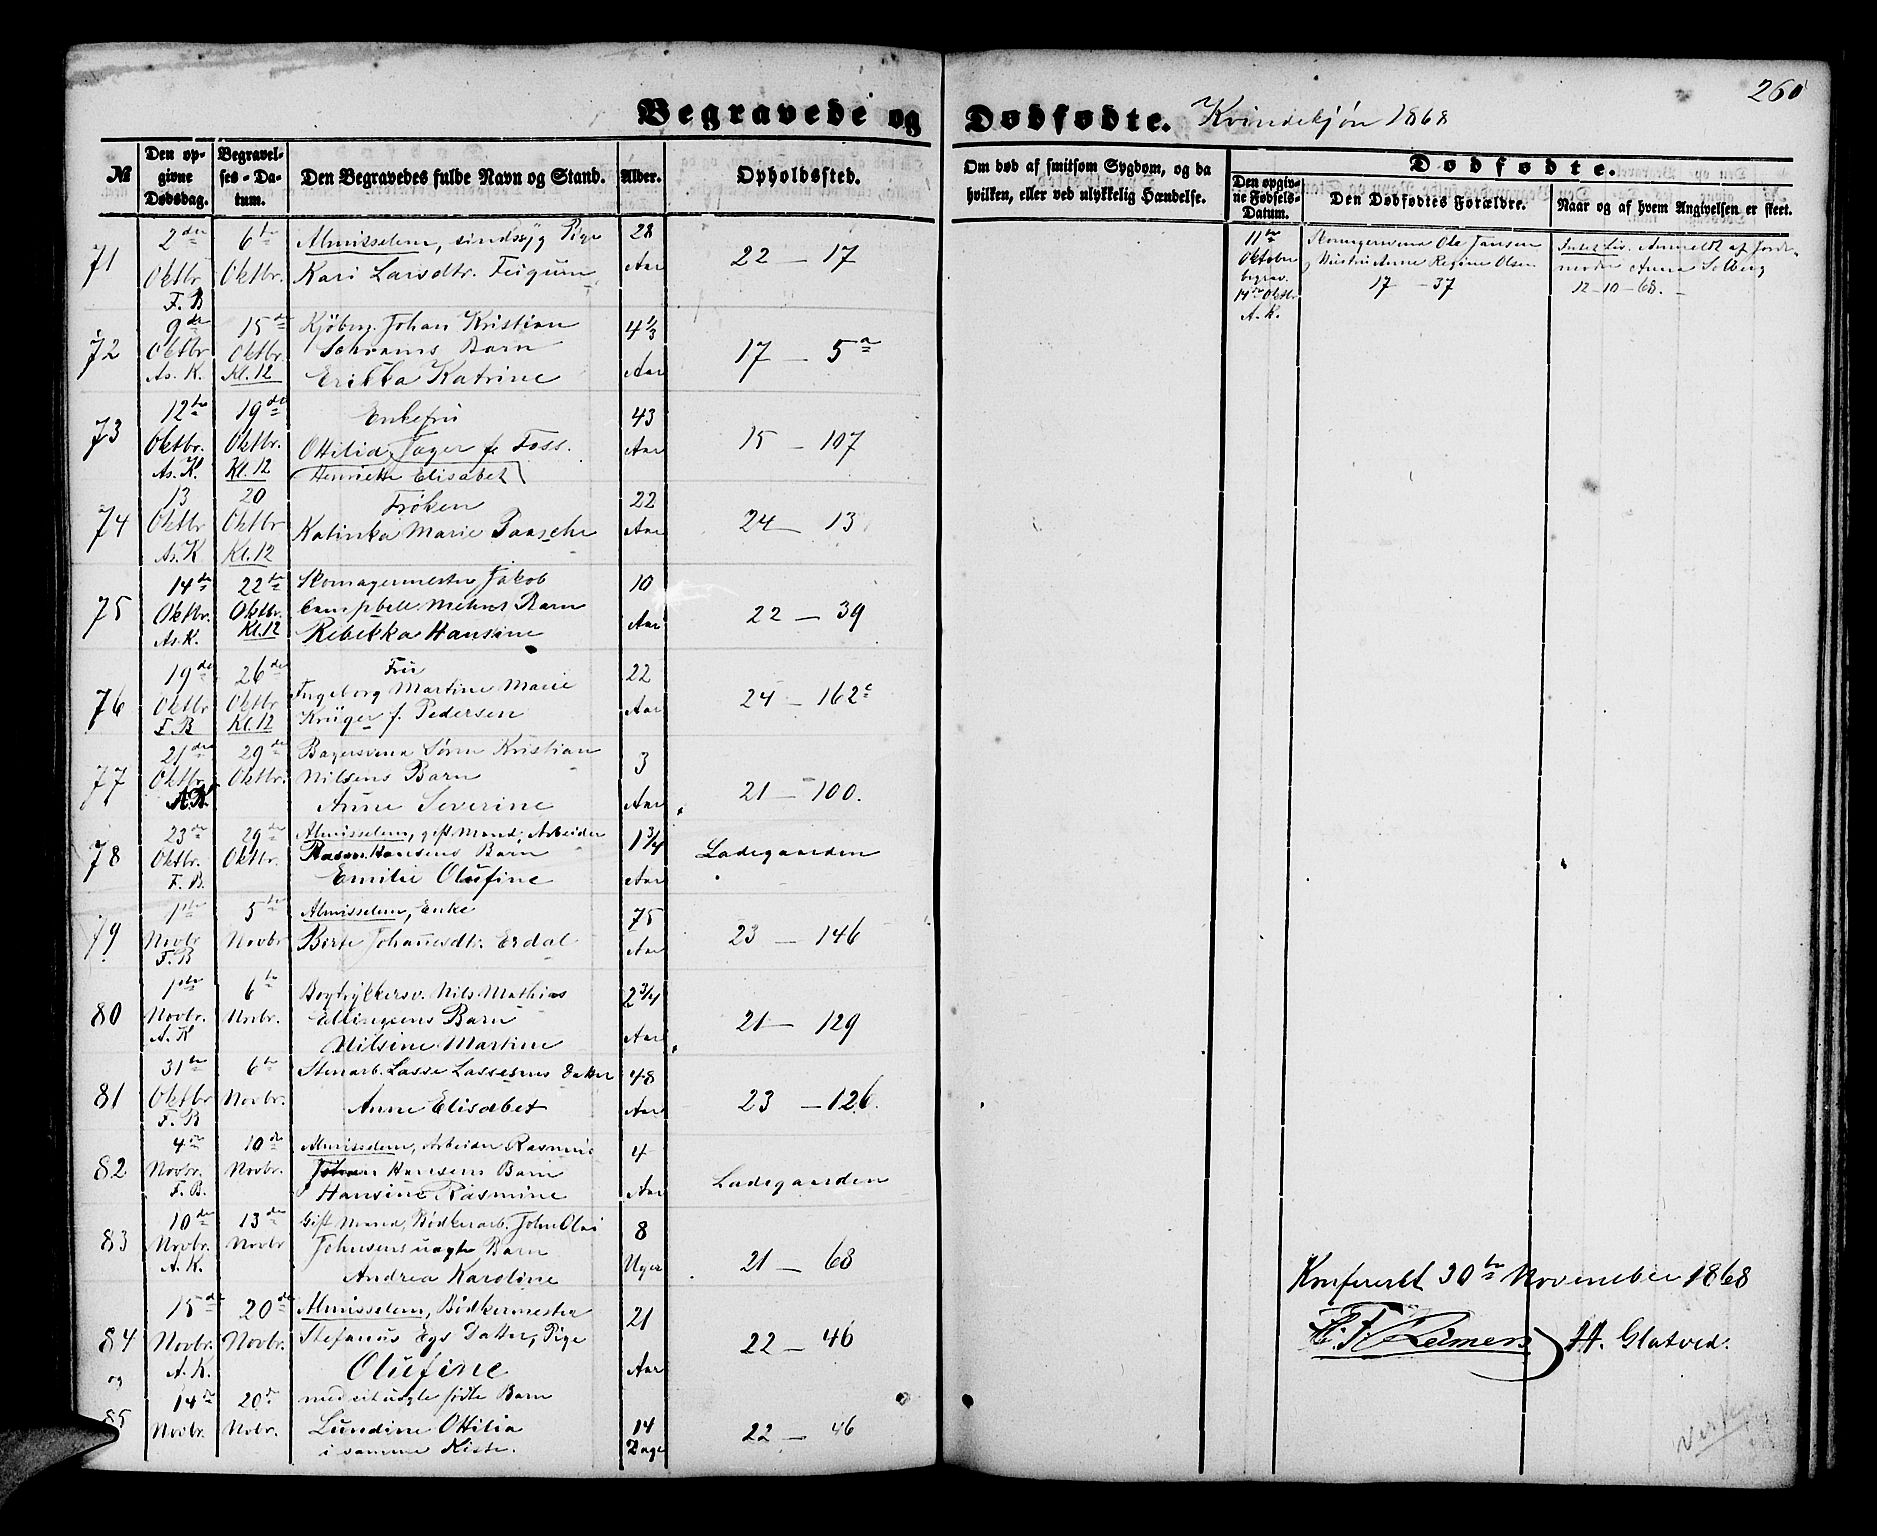 260
Begravede og Dødfødte. Kvindekjøn 1868
№
Den opgivne Dødsdag.
Begravelses-Datum.
Den Begravedes fulde Navn og Stand.
Alder.
Opholdssted.
Om død af smitsom Sygdom, og da hvilken, eller ved ulykkelig Hændelse.
Dødfødte.
Den opgivne Fødsels-Datum.
Den Dødfødtes Forældre.
Naar og af hvem Angivelsen er skeet.
71
2den Oktbr. F. B
6te Oktbr.
Almisselem, sindssyg Pige
Kari Larsdtr. Feigum
28 Aar
22 — 17
72
9de Oktbr. As. K.
15de Oktbr. Kl. 12
Kjøbm. Johan Kristian
Schrams Barn
Erikka Katrine
4 1/3 Aar
17 — 5a
73
12te Oktbr. As. K.
19de Oktbr. Kl. 12
Enkefru
Ottilia Jager f. Foss.
Henriette Elisabet
43 Aar
15 — 107
74
13 Oktbr. As. K
20 Oktbr. Kl. 12
Frøken
Katinka Marie Paasche
22 Aar
24 — 13
75
14de Oktbr. As. K.
22de Oktbr. Kl. 12
Skomagermester Jakob
Campbell Mehns Barn
Rebekka Hansine
10 Aar
22 — 39
76
19de Oktbr F. B
26de Oktbr. Kl. 12
Fru
Ingeborg Martine Marie
Krüger f. Pedersen
22 Aar
24 — 162c
77
21de Oktbr. A. K.
29de Oktbr.
Bagersvend Sørn Kristian
Nilsens Barn
Anne Severine
3 Aar
21 — 100.
78
23de Oktbr. F. B.
29de Oktbr.
Almisselem, gift Mand, Arbeider
Rasm. Hansens Barn
Emilie Olufine
1 3/4 Aar
Ladegaarden
79
1ste Novbr F. B
5te Novbr
Almisselem, Enke
Birte Johannesdtr. Erdal
75 Aar
23 — 146
80
1ste Novbr. A. K
6te Novbr.
Bogtrykkersv. Nils Mathias
Ellingsens Barn
Nilsine Martine
2 3/4 Aar
21 — 129
81
31te Oktbr F. B
6te Novbr.
Stenarb. Lasse Lassesens Datter
Anne Elisabet
48 Aar
23 — 126.
82
4de Novbr. F. B.
10de Novbr.
Almisselem, Arbeider Rasmus
Hansens Barn
Hansine Rasmine
4 Aar
Ladegaarden
83
10de Novbr. A. K.
13de Novbr
Gift Mand, Bødkerarb. John Olai
Johnsens uægte Barn
Andrea Karoline
8 Uger
21 — 68
84
og
15de Novbr. A. K.
20de Novbr.
Almisselem, Bødkermester
Stefanus Egs Datter, Pige
Olufine
21 Aar
22 — 46
85
14de Novbr.
20de Nvbr.
med sit uægte fødte Barn
Lundine Ottilia
i samme Kiste.
14 Dage
22 — 46
11te Oktober begrav. 14de Oktbr. A. K.
Skomagersvend Ole Jansen
Hustru Anne Regine Olsen
17 — 37
Anmeldt af Jordemoder Anna Solberg
12-10-68.
Konfereret 30te November 1868
Reimers H. Glatved.